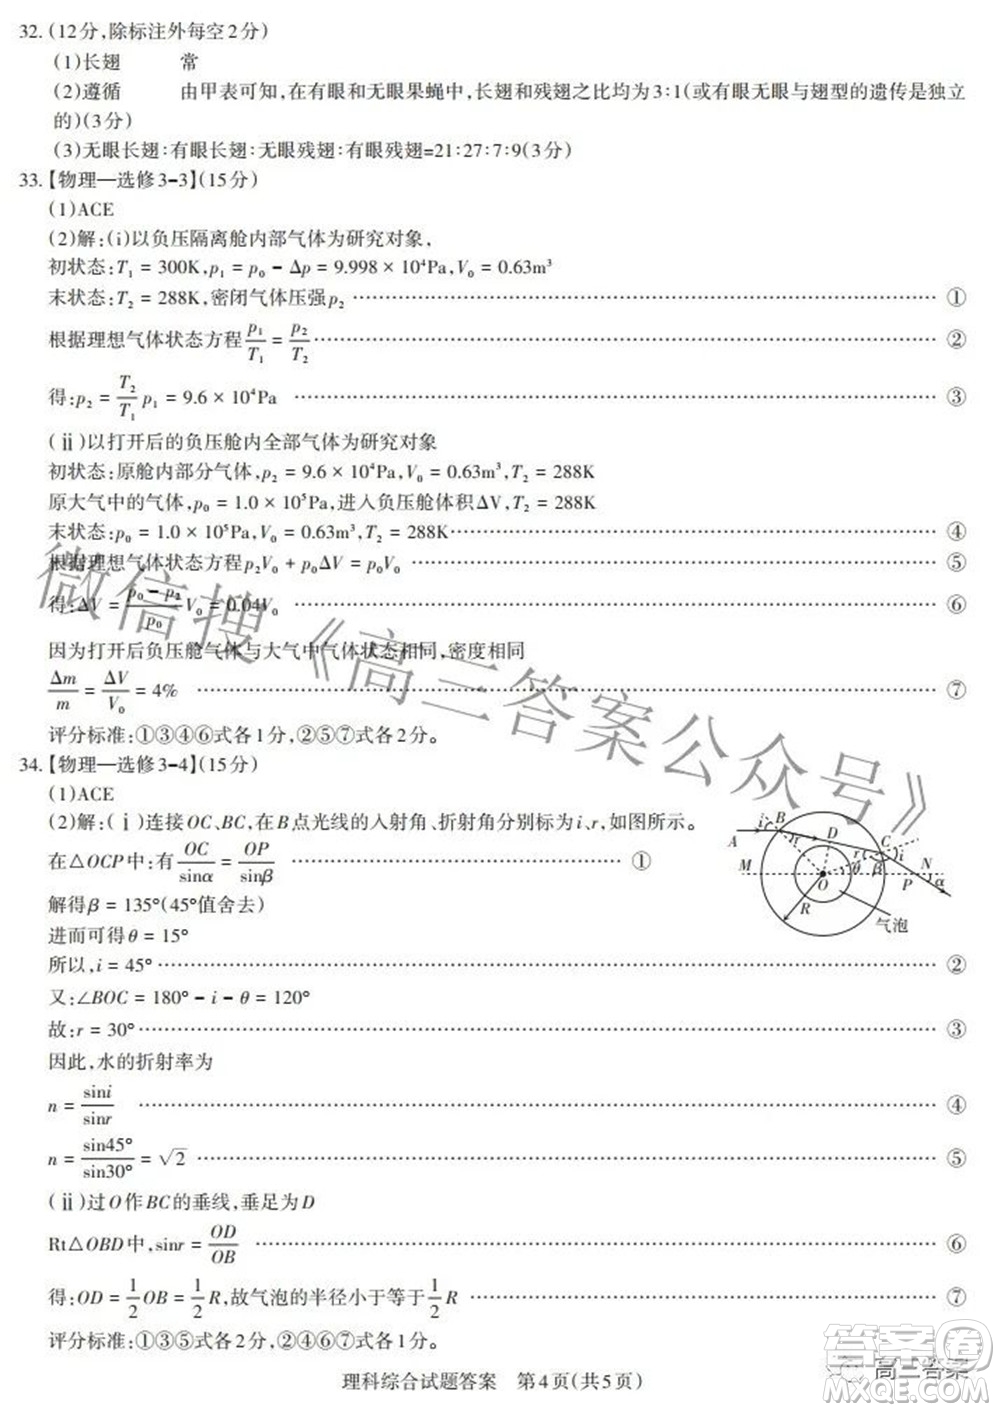 32.(12分,除标注外每空2分)
(1)长翅 常
(2)遵循 由甲表可知,在有眼和无眼果蝇中,长翅和残翅之比均为3:1(或有眼无眼与翅型的遗传是独立
的)(3分)
(3)无眼长翅:有眼长翅:无眼残翅:有眼残翅=21:27:7:9(3分)
33.【物理—选修3-3】(15分)
(1)ACE
(2)解:(i)以负压隔离舱内部气体为研究对象,
初状态:T₁ = 300K,p₁ = p₀ - Δp = 9.998 × 10⁴Pa,V₀ = 0.63m³
末状态:T₂ = 288K,密闭气体压强p₂ ①
根据理想气体状态方程 p₁/T₁ = p₂/T₂ ②
得:p₂ = T₂/T₁ p₁ = 9.6 × 10⁴Pa ③
(ⅱ)以打开后的负压舱内全部气体为研究对象
初状态:原舱内部分气体,p₂ = 9.6 × 10⁴Pa,V₀ = 0.63m³,T₂ = 288K
原大气中的气体,p₀ = 1.0 × 10⁵Pa,进入负压舱体积ΔV,T₂ = 288K
末状态:p₀ = 1.0 × 10⁵Pa,V₀ = 0.63m³,T₂ = 288K ④
根据理想气体状态方程p₂V₀ + p₀ΔV = p₀V₀ ⑤
得:ΔV = (p₀ - p₂)/p₀ V₀ = 0.04V₀ ⑥
因为打开后负压舱气体与大气中气体状态相同,密度相同
Δm/m = ΔV/V₀ = 4% ⑦
评分标准:①③④⑥式各1分,②⑤⑦式各2分。
34.【物理—选修3-4】(15分)
(1)ACE
(2)解:(ⅰ)连接OC、BC,在B点光线的入射角、折射角分别标为i、r,如图所示。
在△OCP中:有 OC/sinα = OP/sinβ ①
解得β = 135°(45°值舍去)
进而可得θ = 15°
所以,i = 45° ②
又:∠BOC = 180° - i - θ = 120°
故:r = 30° ③
因此,水的折射率为
n = sini/sinr ④
n = sin45°/sin30° = √2 ⑤
(ⅱ)过O作BC的垂线,垂足为D
Rt△OBD中,sinr = OD/OB ⑥
得:OD = 1/2 OB = 1/2 R,故气泡的半径小于等于1/2 R ⑦
评分标准:①③⑤式各2分,②④⑥⑦式各1分。
A i B r D r C i M O θ β P N α R 气泡
理科综合试题答案 第4页(共5页)
微信搜《高三答案公众号》
高三答案
答案圈
MXQE.COM